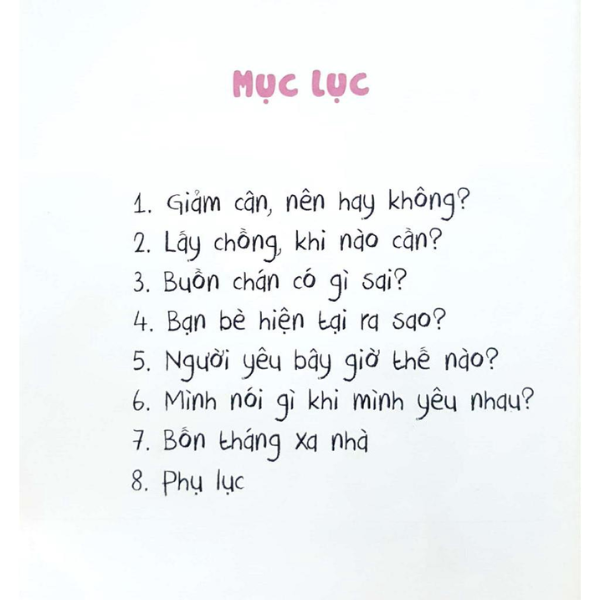 Mục lục
1. Giảm cân, nên hay không?
2. Lấy chồng, khi nào cần?
3. Buồn chán có gì sai?
4. Bạn bè hiện tại ra sao?
5. Người yêu bây giờ thế nào?
6. Mình nói gì khi mình yêu nhau?
7. Bốn tháng xa nhà
8. Phụ lục